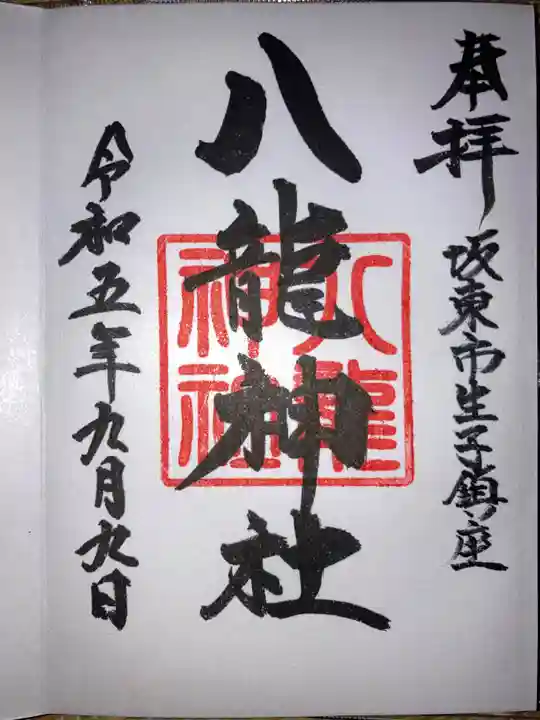 奉拝
坂東市生子鎮座
八龍神社
八龍
神社
令和五年九月九日